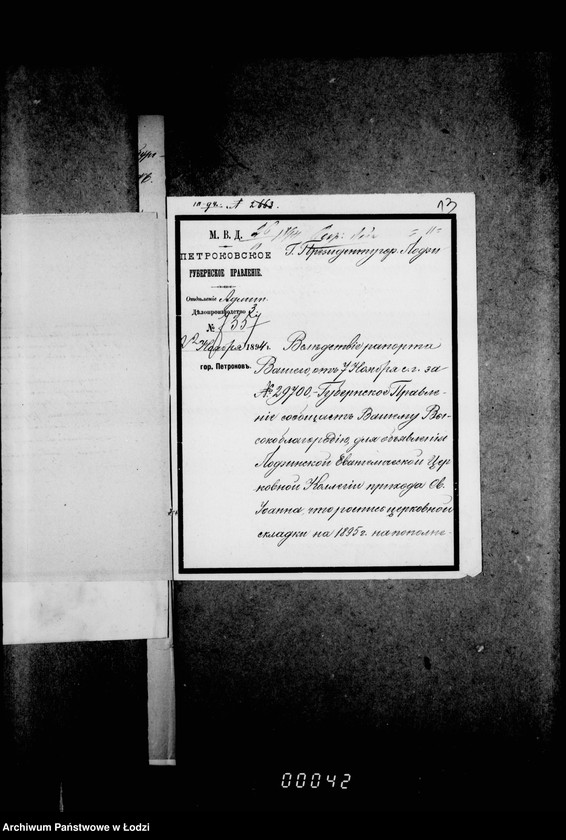 13
М. В. Д.
ПЕТРОКОВСКОЕ
ГУБЕРНСКОЕ ПРАВЛЕНІЕ.
Отдѣленіе Админ.
Дѣлопроизводство
№
Ноября 1894 г.
гор. Петроковъ.
Г. Президенту гор. Лодзи
Вслѣдствіе рапорта
Вашего, отъ 7 Ноября с. г. за
№ 29700,- Губернское Правле-
ніе сообщаетъ Вашему Вы-
сокоблагородію, для объявленія
Лодзинской Евангелической Цер
ковной Коллегіи прихода Св.
Іоанна, что роспись церковной
складки на 1895 г. на пополне-
00042
Archiwum Państwowe w Łodzi